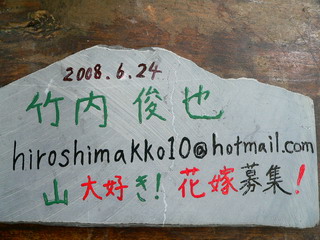 2008.6.24
竹内 俊也
hiroshimakko10@hotmail.com
山 大好き! 花嫁募集!